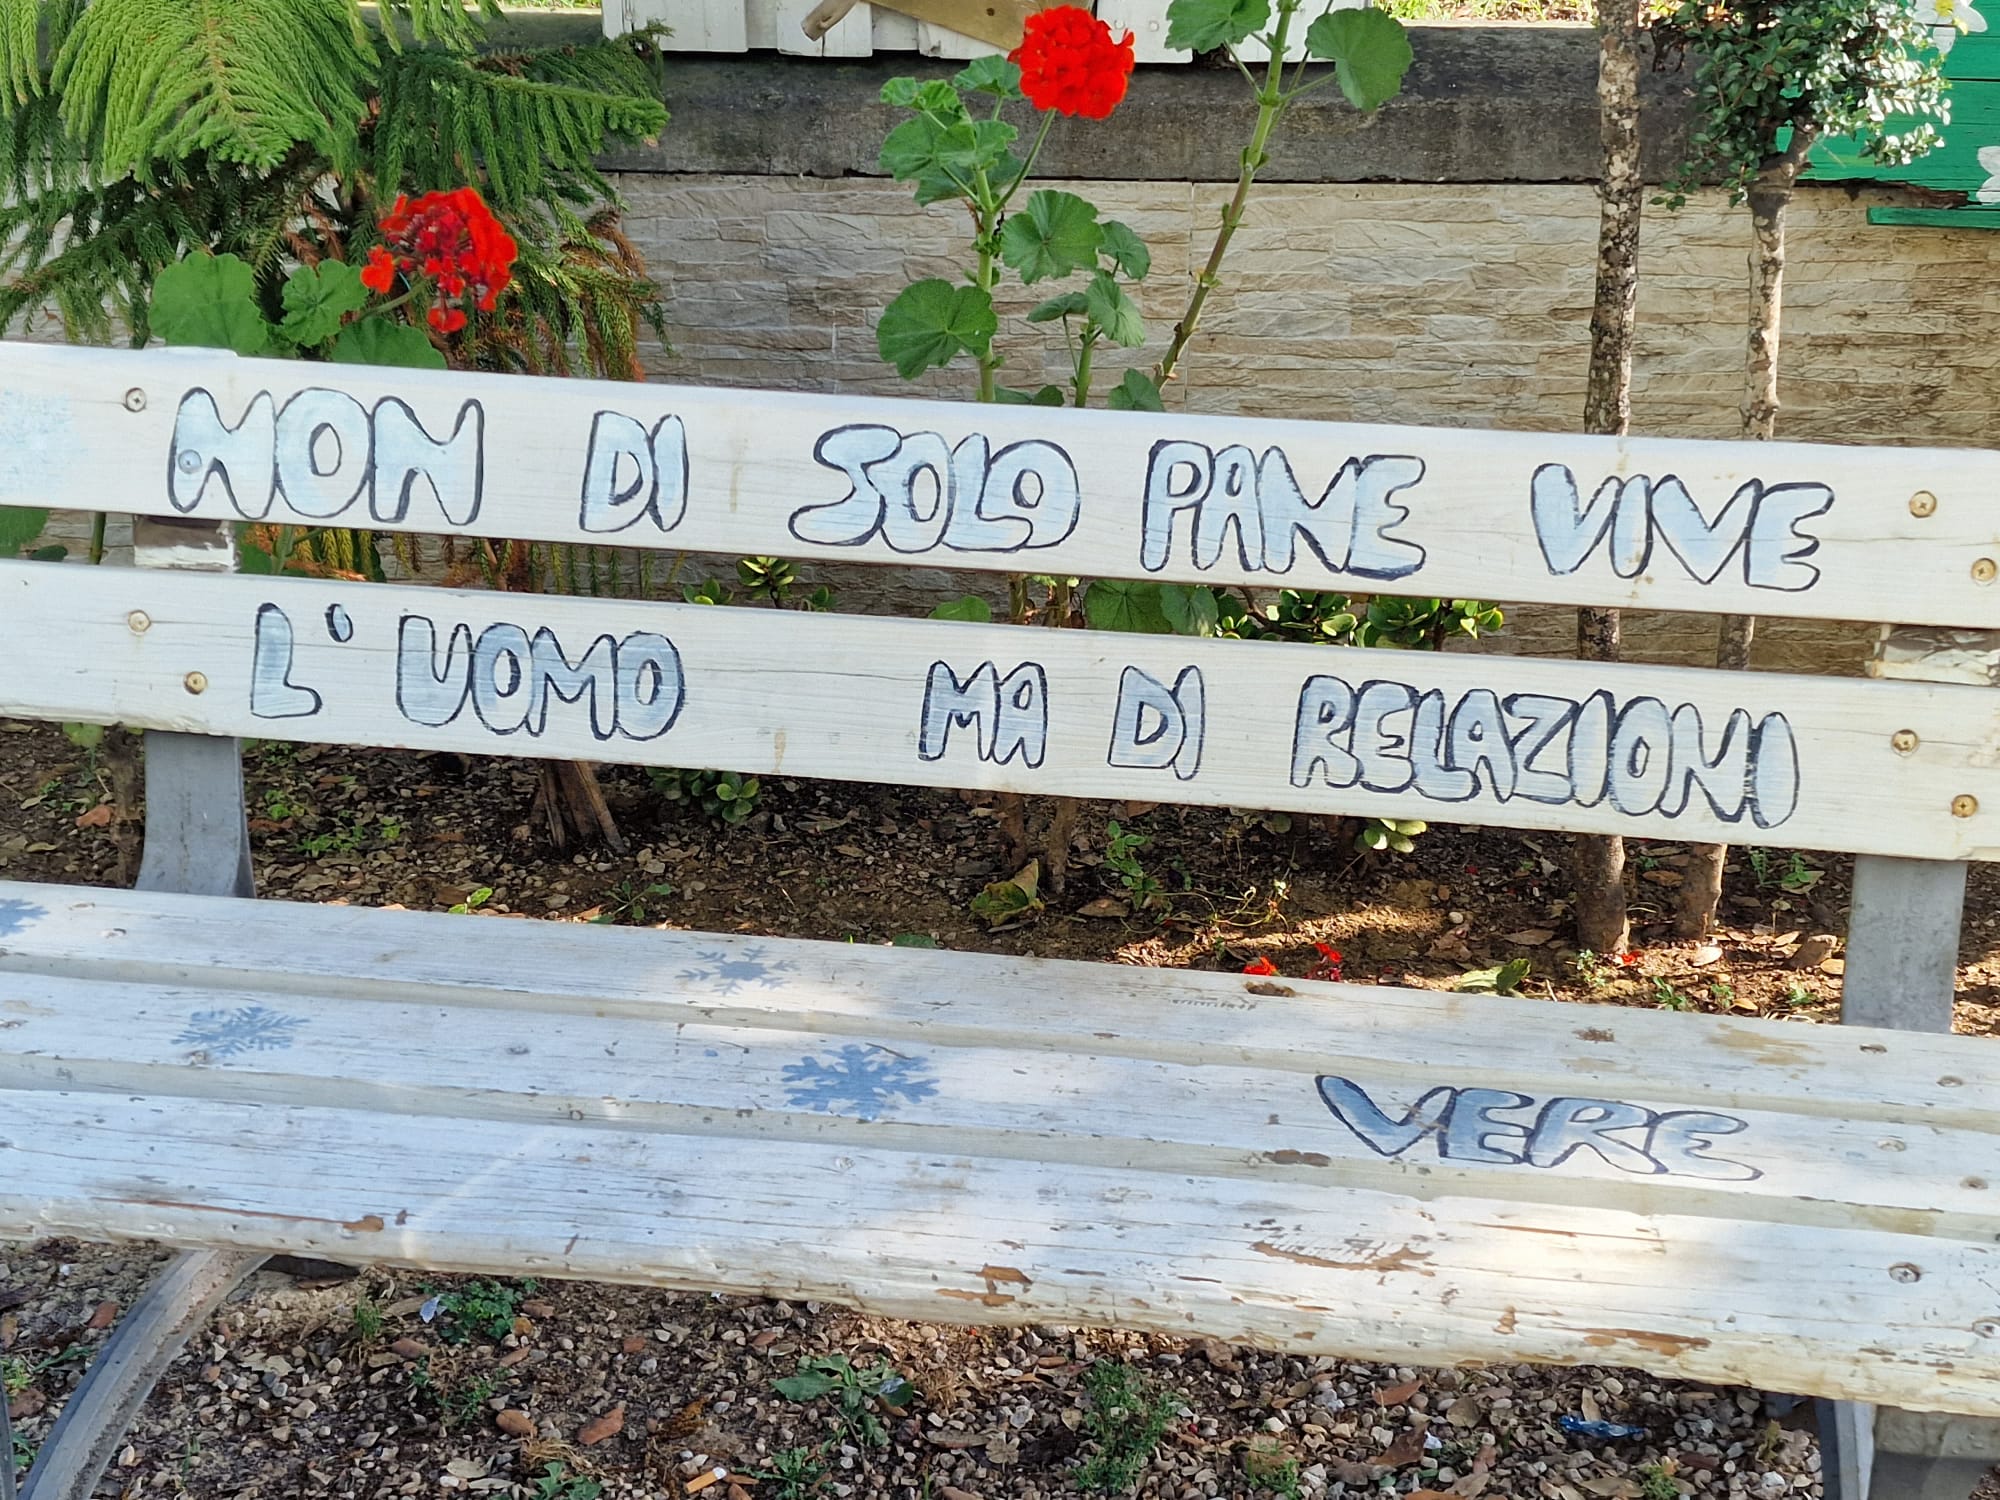 NON DI SOLO PANE VIVE
L'UOMO MA DI RELAZIONI
VERE